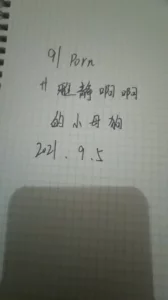 91 Porn
静啊啊
的小母狗
2021.9.5